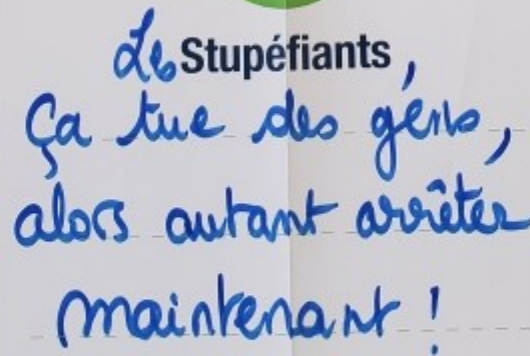 Les Stupéfiants,
Ça tue des gens,
alors autant arrêter
maintenant !